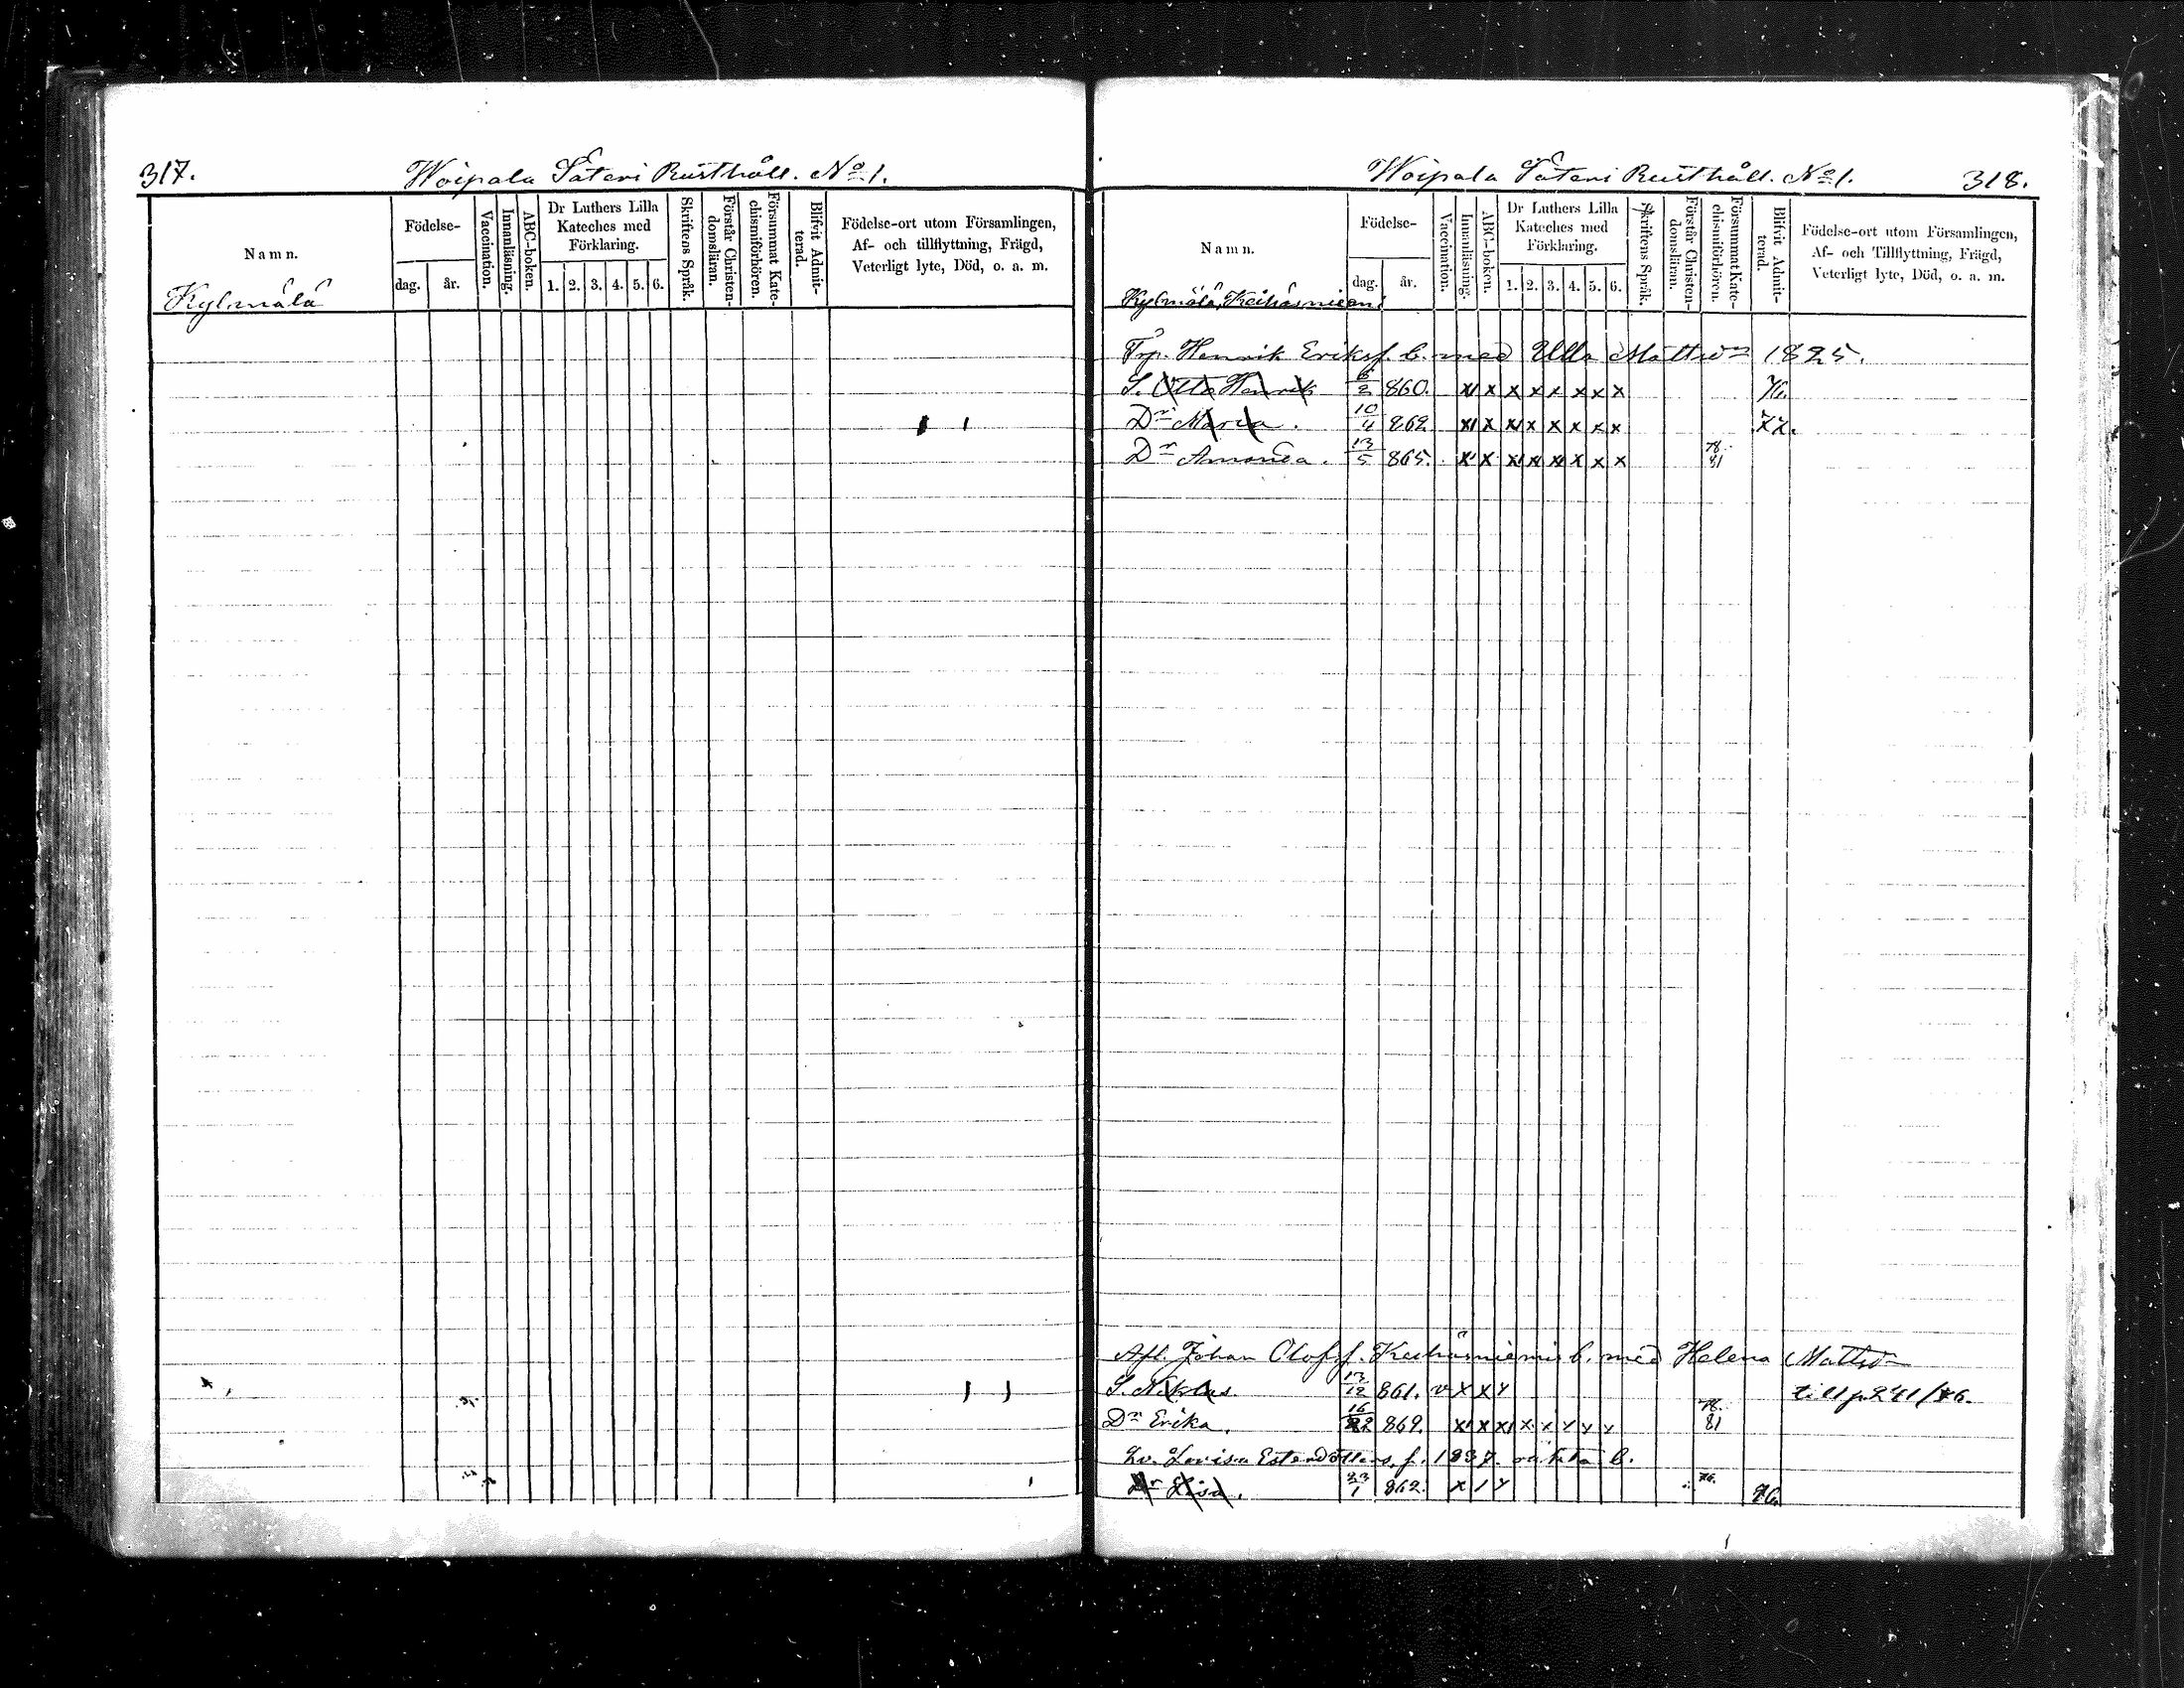 317.
Woipala Säteri Rusthåll. No 1.
Namn.
Födelse-
dag.
år.
Vaccination.
Innanläsning.
ABC-boken.
Dr Luthers Lilla
Kateches med
Förklaring.
1. 2. 3. 4. 5. 6.
Skriftens Språk.
Förstår Christen-
domsläran.
Försummat Kate-
chismiförhören.
Blifvit Admit-
terad.
Födelse-ort utom Församlingen,
Af- och tillflyttning, Frägd,
Veterligt lyte, Död, o. a. m.
Kylmälä
Woipala Säteri Rusthåll. No 1.
318.
Namn.
Födelse-
dag.
år.
Vaccination.
Innanläsning.
ABC-boken.
Dr Luthers Lilla
Kateches med
Förklaring.
1. 2. 3. 4. 5. 6.
Skriftens Språk.
Förstår Christen-
domsläran.
Försummat Kate-
chismiförhören.
Blifvit Admit-
terad.
Födelse-ort utom Församlingen,
Af- och Tillflyttning, Frägd,
Veterligt lyte, Död, o. a. m.
Kylmälä
Trp. Henrik Eriksf. b. med Ulla Mattsdr 1825.
S. Otto Henrik 6/2 860. x x x x x x x x 76.
Dr Maria. 10/4 862 x x x x x x x x 77.
Dr Amanda. 13/5 865. x x x x x x x x 78. 81
Afl. Johan Olofsf. b. med Helena Mattsdr
S. Niklas. 13/12 861. v x x till p. 241/76.
Dr Erika. 16/ 869. x x x x x 78. 81
Lovisa Estersdotters, f. 1837. b.
Dr Lisa. 23/1 862. x 76. 76.